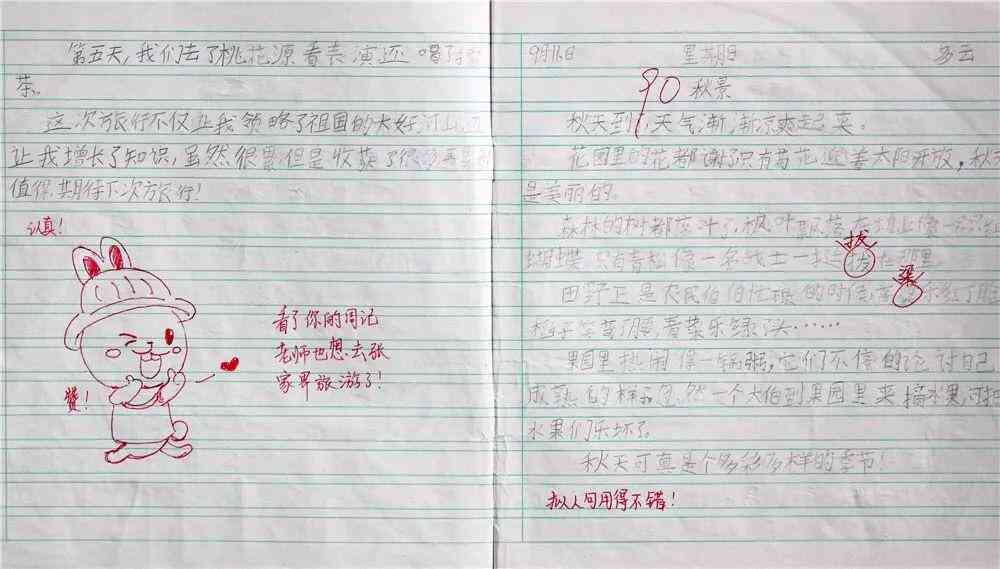 第五天,我们去了桃花源看表演还喝了
茶。
这次旅行不仅让我领略了祖国的大好河山,还
让我增长了知识,虽然很累但是收获了很多
值得期待下次旅行!
认真!
看了你的周记
老师也想去张
家界旅游了!
赞!
9月16日 星期日 多云
90 秋景
秋天到了,天气渐渐凉爽起来。
花园里的花都谢了只有菊花迎着太阳开放,秋天
是美丽的。
森林的树都落叶了,枫叶飘落在地上像一只只红
蝴蝶,只有青松像一名战士一 拔 在那里。
田野正是农民伯伯忙碌的时候 高 梁 乐红了脸
稻子笑弯了腰青菜乐绿了头……
果园里热闹像一锅粥,它们不停的讨论自己
成熟的样子忽然一个大伯到果园里来摘水果,可把
水果们乐坏了。
秋天可真是个多彩多样的季节!
拟人句用得不错!